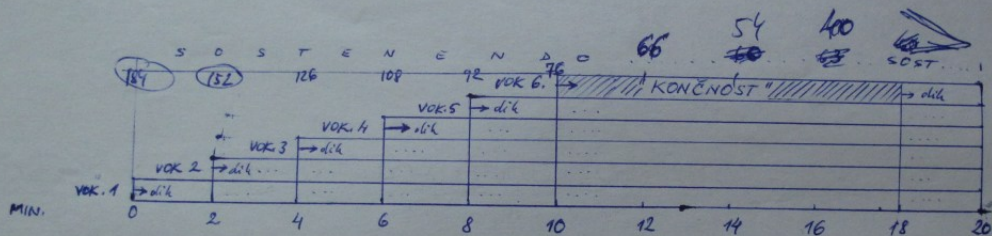 54 400
S O S T E N E N D O 66 60 SOST.
184 152 126 108 92 76
VOK 6. "KONČNOST" dih
VOK.5 dih
VOK.4 dih
VOK.3 dih
VOK 2 dih
VOK.1 dih
MIN. 0 2 4 6 8 10 12 14 16 18 20